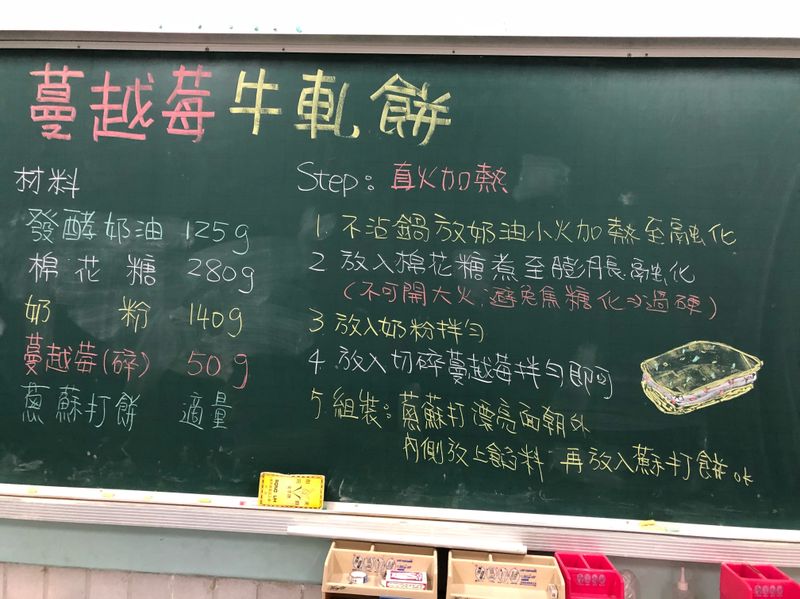 蔓越莓牛軋餅
材料
發酵奶油 125g
棉花糖 280g
奶粉 140g
蔓越莓(碎) 50g
蔥蘇打餅 適量
Step: 直火加熱
1. 不沾鍋放奶油小火加熱至融化
2 放入棉花糖煮至膨脹.融化
(不可開大火.避免焦糖化⇒過硬)
3 放入奶粉拌勻
4. 放入切碎蔓越莓拌勻即可
5. 組裝: 蔥蘇打漂亮面朝外
內側放上餡料 再放入蘇打餅ok